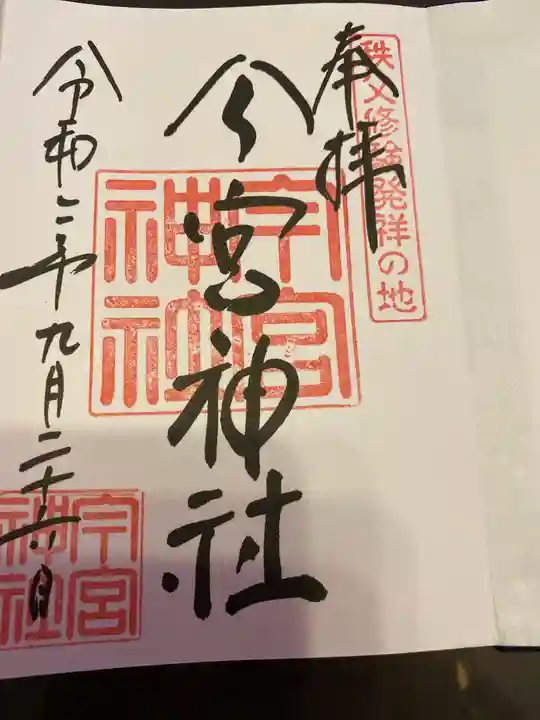 秩父修験発祥の地
奉拝
今宮神社
今宮神社
令和二年九月二十六日
今宮神社